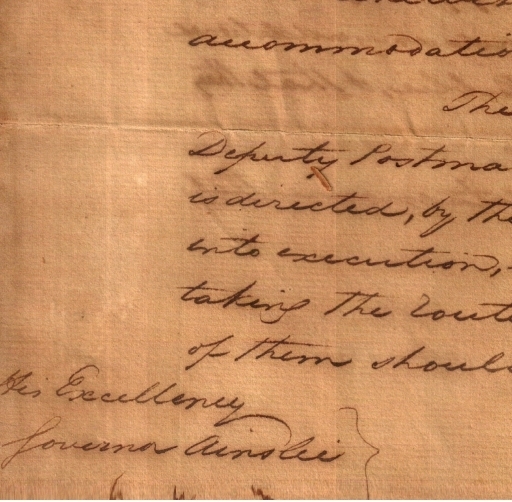 accommodatio
The
Deputy Postma
is directed, by the
into execution,
taking the route
of them shoul
His Excellency
Governor Ainslie